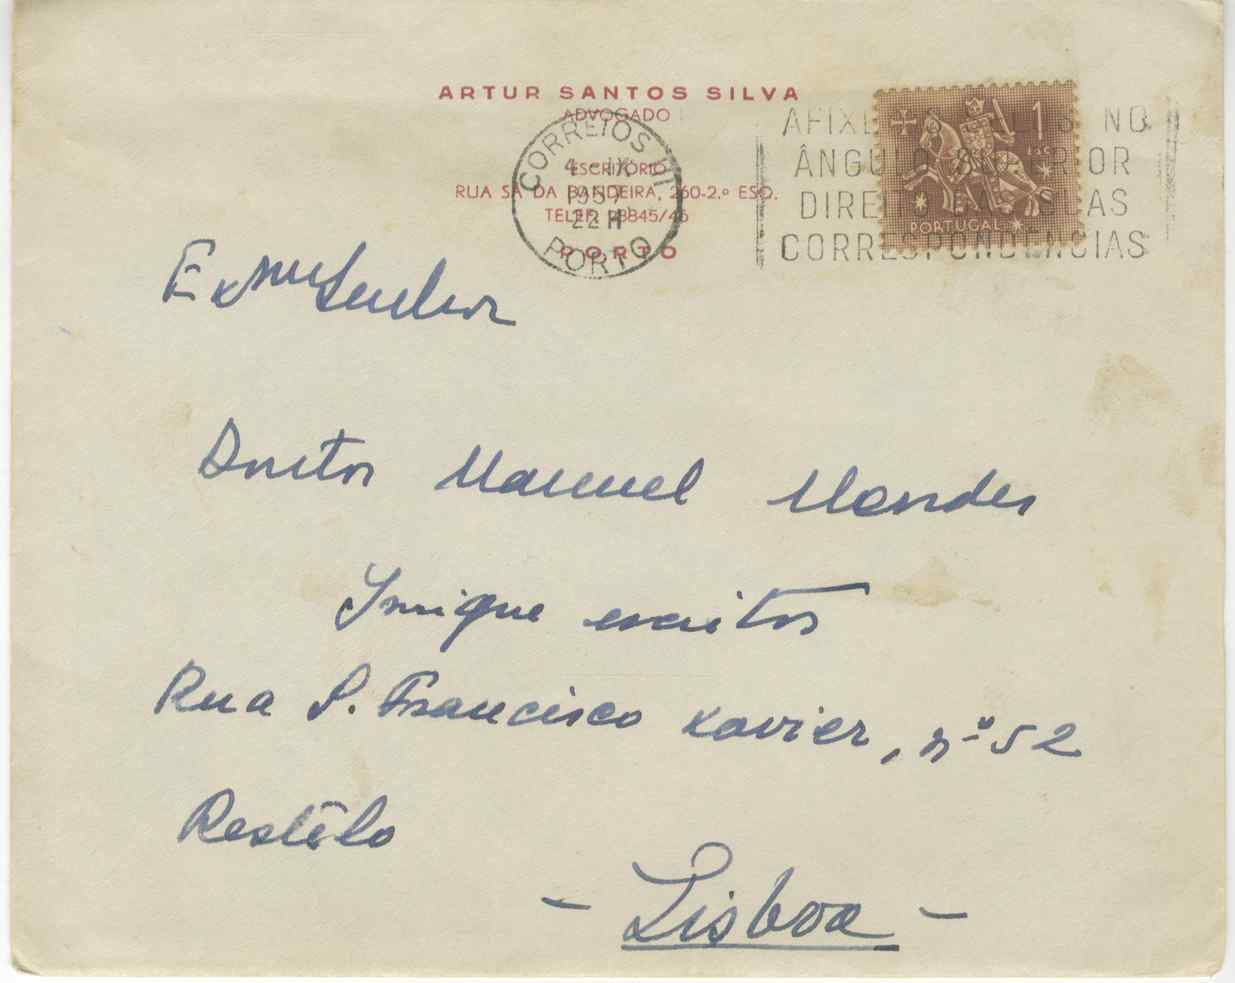 ARTUR SANTOS SILVA
ADVOGADO
ESCRITÓRIO
RUA SÁ DA BANDEIRA, 260-2.º ESQ.
TELEF. 28845/46
PORTO
CORREIOS
4-IX
1957
22 H
PORTO
1
ESC.
PORTUGAL
AFIXE NO
ÂNGULO SUPERIOR
DIREITO DAS SUAS
CORRESPONDÊNCIAS
Exmo Senhor
Doutor Manuel Mendes
Insigne escritor
Rua S. Francisco Xavier, nº 52
Restêlo
- Lisboa -